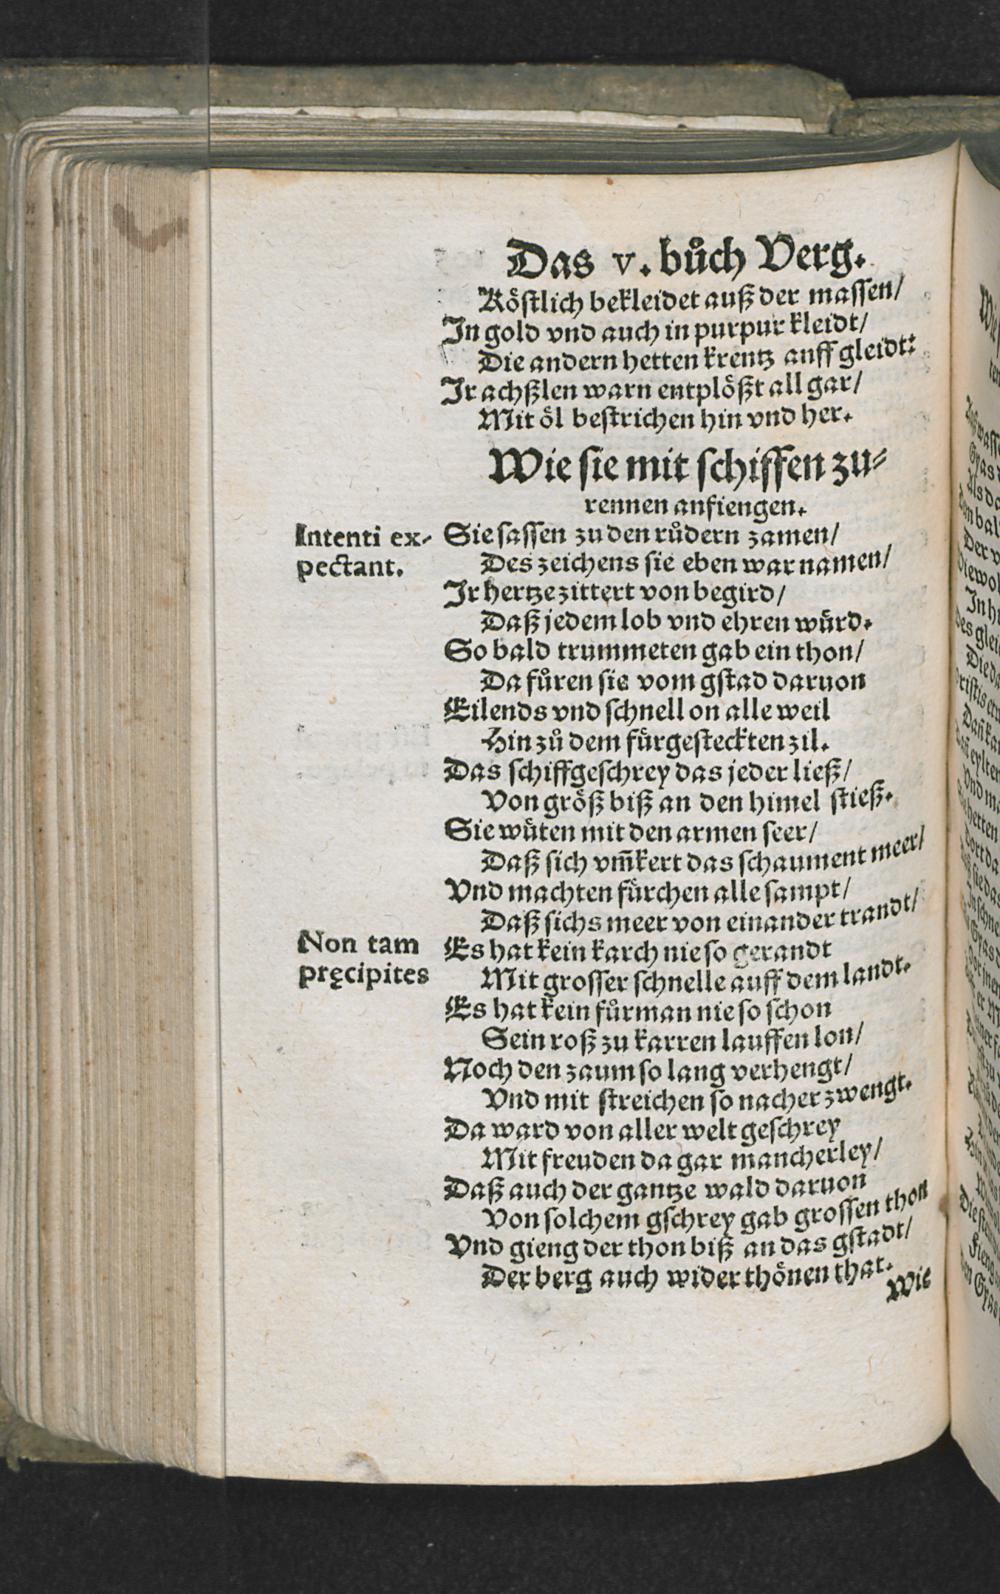 Das v. bůch Verg.
Köstlich bekleidet auß der massen/
In gold vnd auch in purpur kleidt/
Die andern hetten krentz auff gleidt:
Ir achßlen warn entplößt all gar/
Mit öl bestrichen hin vnd her.
Wie sie mit schiffen zu⸗
rennen anfiengen.
Intenti ex-
pectant.
Sie sassen zu den růdern zamen/
Des zeichens sie eben war namen/
Ir hertze zittert von begird/
Daß jedem lob vnd ehren würd.
So bald trummeten gab ein thon/
Da fůren sie vom gstad daruon
Eilends vnd schnell on alle weil
Hin zů dem fürgesteckten zil.
Das schiffgeschrey das jeder ließ/
Von größ biß an den himel stieß.
Sie wüten mit den armen seer/
Daß sich vm̃kert das schaument meer/
Vnd machten fürchen alle sampt/
Daß sichs meer von einander trandt/
Non tam
pręcipites
Es hat kein karch nie so gerandt
Mit grosser schnelle auff dem landt.
Es hat kein fůrman nie so schon
Sein roß zu karren lauffen lon/
Noch den zaum so lang verhengt/
Vnd mit streichen so nacher zwengt.
Da ward von aller welt geschrey
Mit freuden da gar mancherley/
Daß auch der gantze wald daruon
Von solchem gschrey gab grossen thon
Vnd gieng der thon biß an das gstadt/
Der berg auch wider thönen that.
Wie